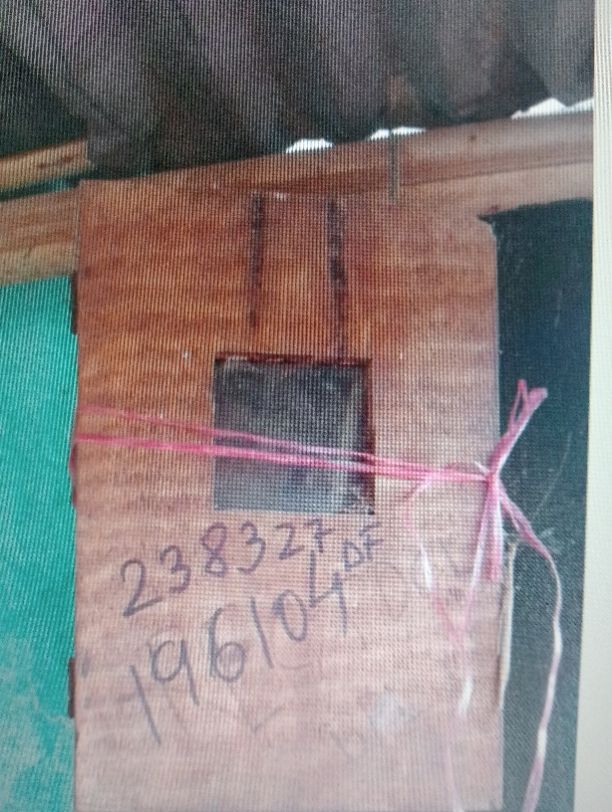 238327
DF
196104